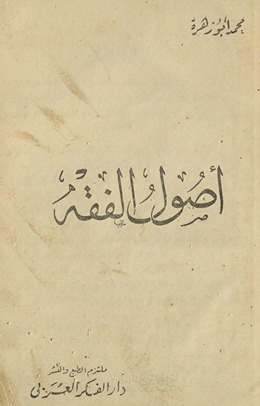 محمد أبو زهرة
أصول الفقه
ملتزم الطبع والنشر
دار الفكر العربي